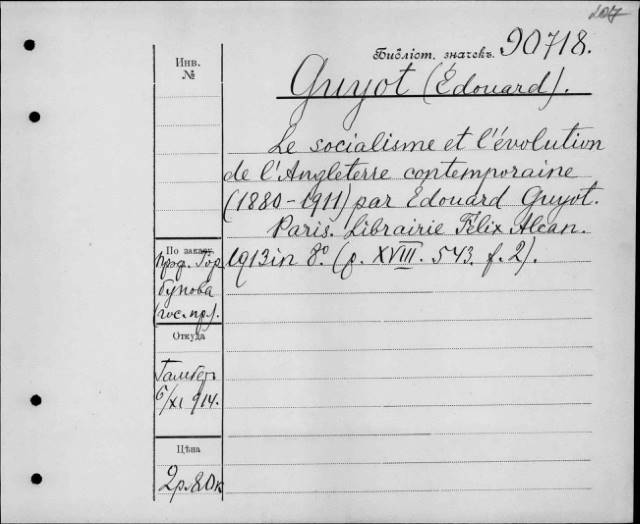 Инв.
№
Библіот. значекъ 90718.
Guyot (Édouard).
Le socialisme et l'évolution
de l'Angleterre contemporaine
(1880-1911) par Edouard Guyot.
Paris. Librairie Félix Alcan.
1913 in 8º. (p. XVIII. 543. f. 2).
По заказу
проф. Гор
бунова
(гос. пр.).
Откуда
6/XI 914.
Цѣна
2р. 80к